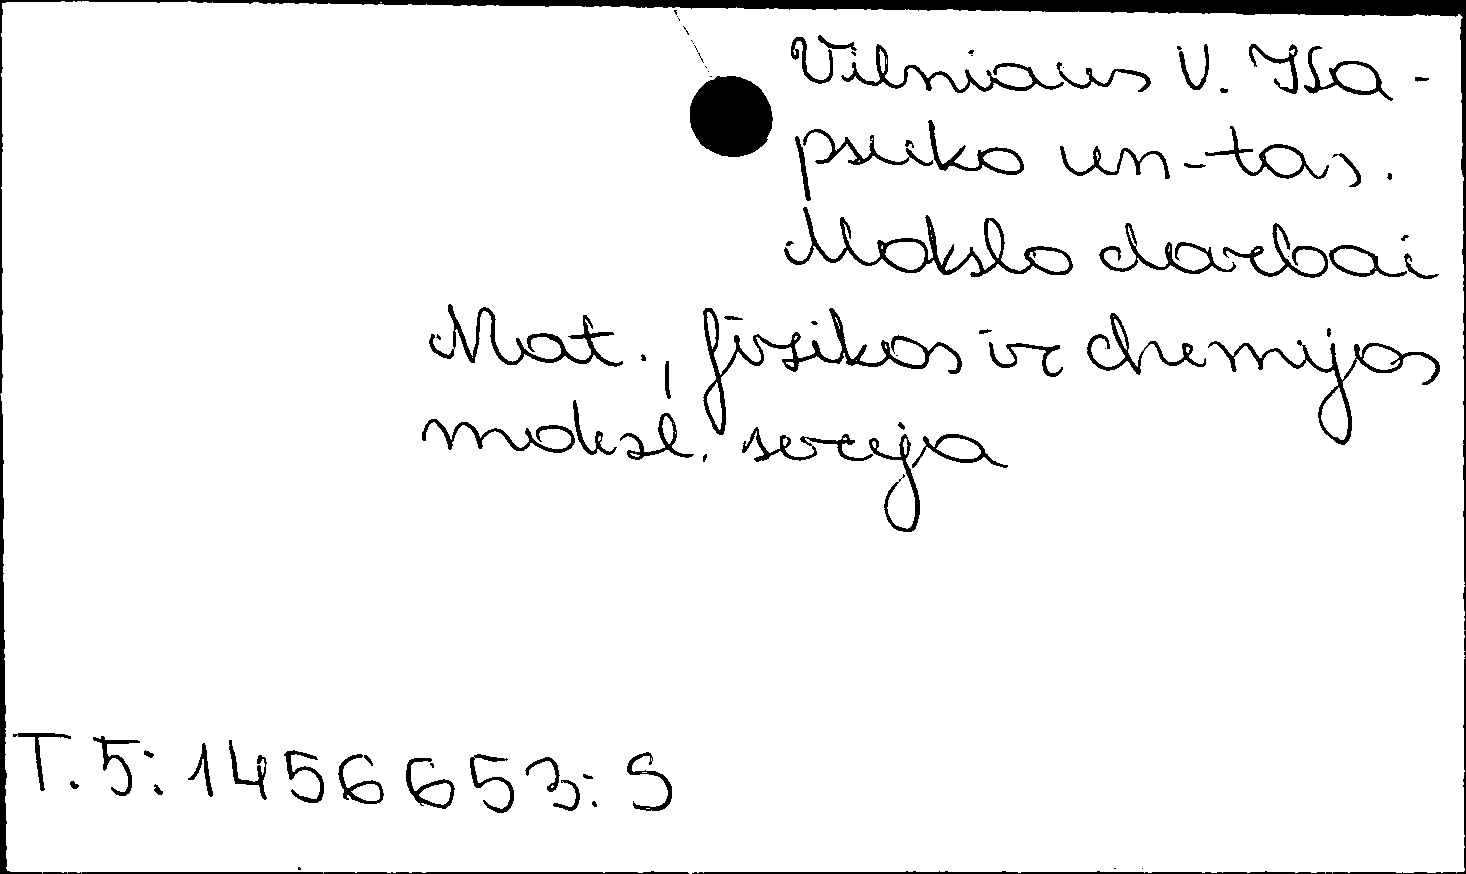 Vilniaus V. Ka-
psuko un-tas.
Mokslo darbai
Mat., fizikos ir chemijos
moksl. serija
T.5: 1456653: S